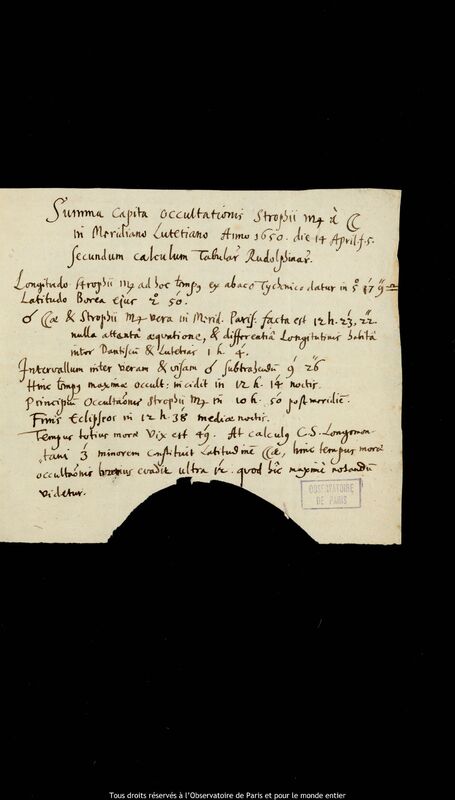 Summa Capita occultationis Strophii ♍ à ☾
in Meridiano Lutetiano Anno 1650. die 14 April. f. 5.
secundum calculum Tabular Rudolphinar.
Longitudo Strophii ♍ ad hoc temp9 ex abaco Tychonico datur in 5° 47' 9"
Latitudo Borea ejus 2° 50.
☌ ☾æ & Strophii ♍ vera in Merid. Paris. facta est 12 h. 23', 22"
nulla attenta æquatione, & differentia Longitudinis habita
inter Dantiscu & Lutetias 1 h. 4'.
Intervallum inter veram & visam ☌ subtrahendu 9' 26"
Hinc temp9 maximæ occult: incidit in 12 h. 14' noctis.
Principiu Occultationis Strophii ♍ in 10 h. 50 post meridie.
Finis Eclipseos in 12 h. 38' mediæ noctis.
Tempus totius moræ vix est 49'. At calculus C. S. Longomon
tani 3' minorem constituit Latitudine ☾æ, hinc tempus moræ
occultaonis evadit ultra quod hic maxime notandu
videtur.
OBSERVATOIRE
DE PARIS
Tous droits réservés à l'Observatoire de Paris et pour le monde entier